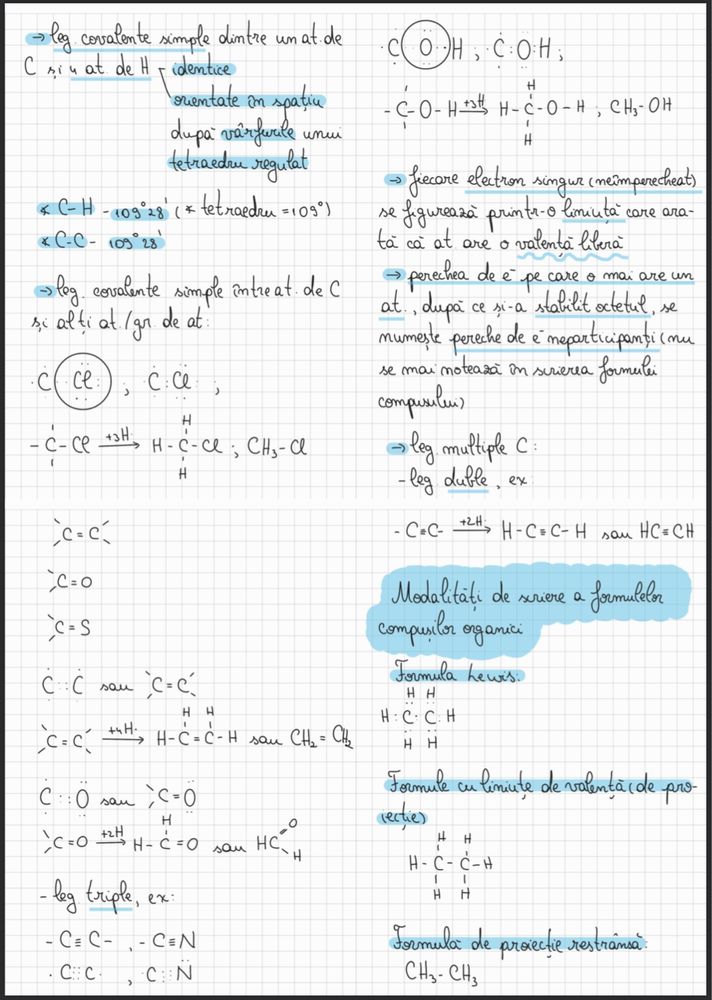 → leg covalente simple dintre un at. de
C și 4 at. de H - identice
orientate în spațiu
după vârfurile unui
tetraedru regulat
∢ C-H - 109°28' (∢ tetraedru = 109°)
∢ C-C - 109°28'
→ leg. covalente simple între at. de C
și alți at./gr. de at:
·C (Cl:) , ·C:Cl: ;
-C-Cl +3H→ H-C-Cl ; CH₃-Cl
H
H
·C (O) H , ·C:O:H ;
-C-O-H +3H→ H-C-O-H ; CH₃-OH
H
H
→ fiecare electron singur (neîmperecheat)
se figurează printr-o liniuță care ara-
tă că at. are o valență liberă
→ perechea de e⁻ pe care o mai are un
at., după ce și-a stabilit octetul, se
numește pereche de e⁻ neparticipanți (nu
se mai notează în scrierea formulei
compusului)
→ leg. multiple C:
- leg duble, ex:
>C=C<
>C=O
>C=S
C::C sau >C=C<
H H
>C=C< +4H→ H-C=C-H sau CH₂=CH₂
C::O sau >C=O
H
>C=O +2H→ H-C=O sau HC=O
H
- leg triple, ex:
-C≡C- , -C≡N
·C:::C· , ·C:::N
-C≡C- +2H→ H-C≡C-H sau HC≡CH
Modalități de scriere a formulelor
compușilor organici
Formula Lewis:
H H
H:C:C:H
H H
Formule cu liniuțe de valență (de pro-
iecție)
H H
H-C-C-H
H H
Formulă de proiecție restrânsă:
CH₃-CH₃